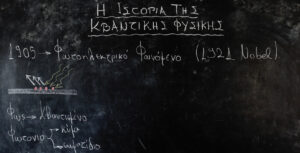 Η ΙΣΤΟΡΙΑ ΤΗΣ
ΚΒΑΝΤΙΚΗΣ ΦΥΣΙΚΗΣ
1905 → Φωτοηλεκτρικό Φαινόμενο (1921 Nobel)
Φως → κβαντισμένο
Φωτόνιο → κύμα
→ σωματίδιο